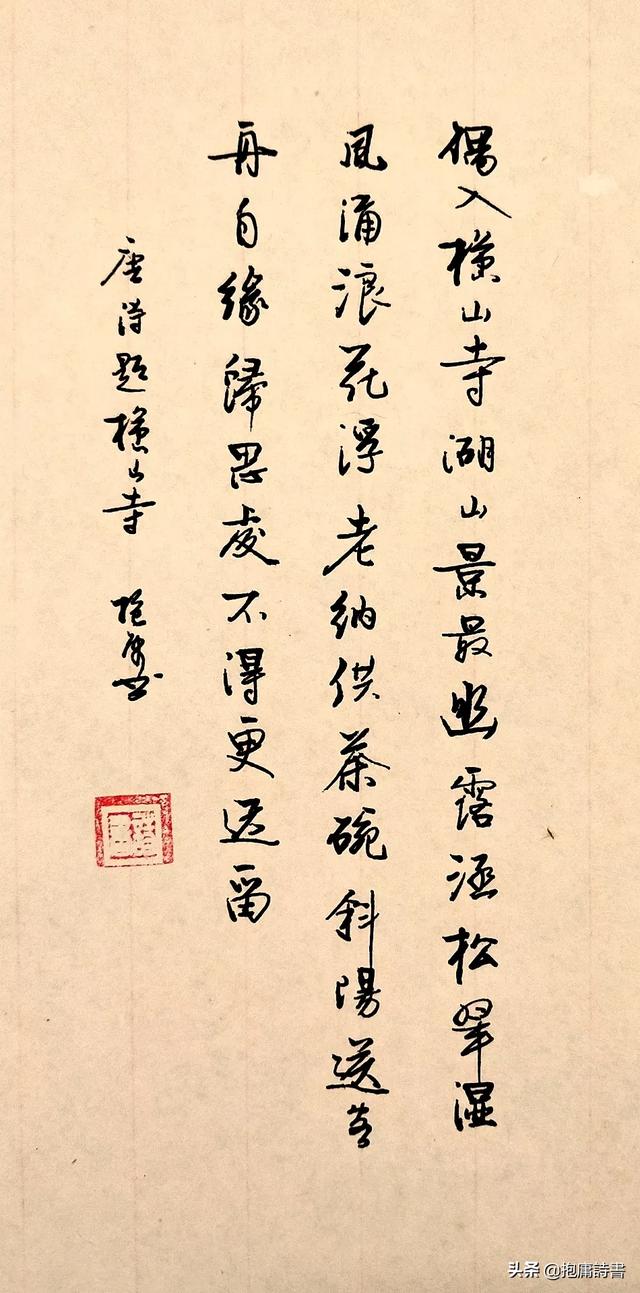 偶入橫山寺湖山景最幽露涵松翠湿
風涌浪花浮老納供茶碗斜陽送客
舟自緣歸思處不得更迟留
唐詩題橫山寺 抱庸书
头条 @抱庸詩書